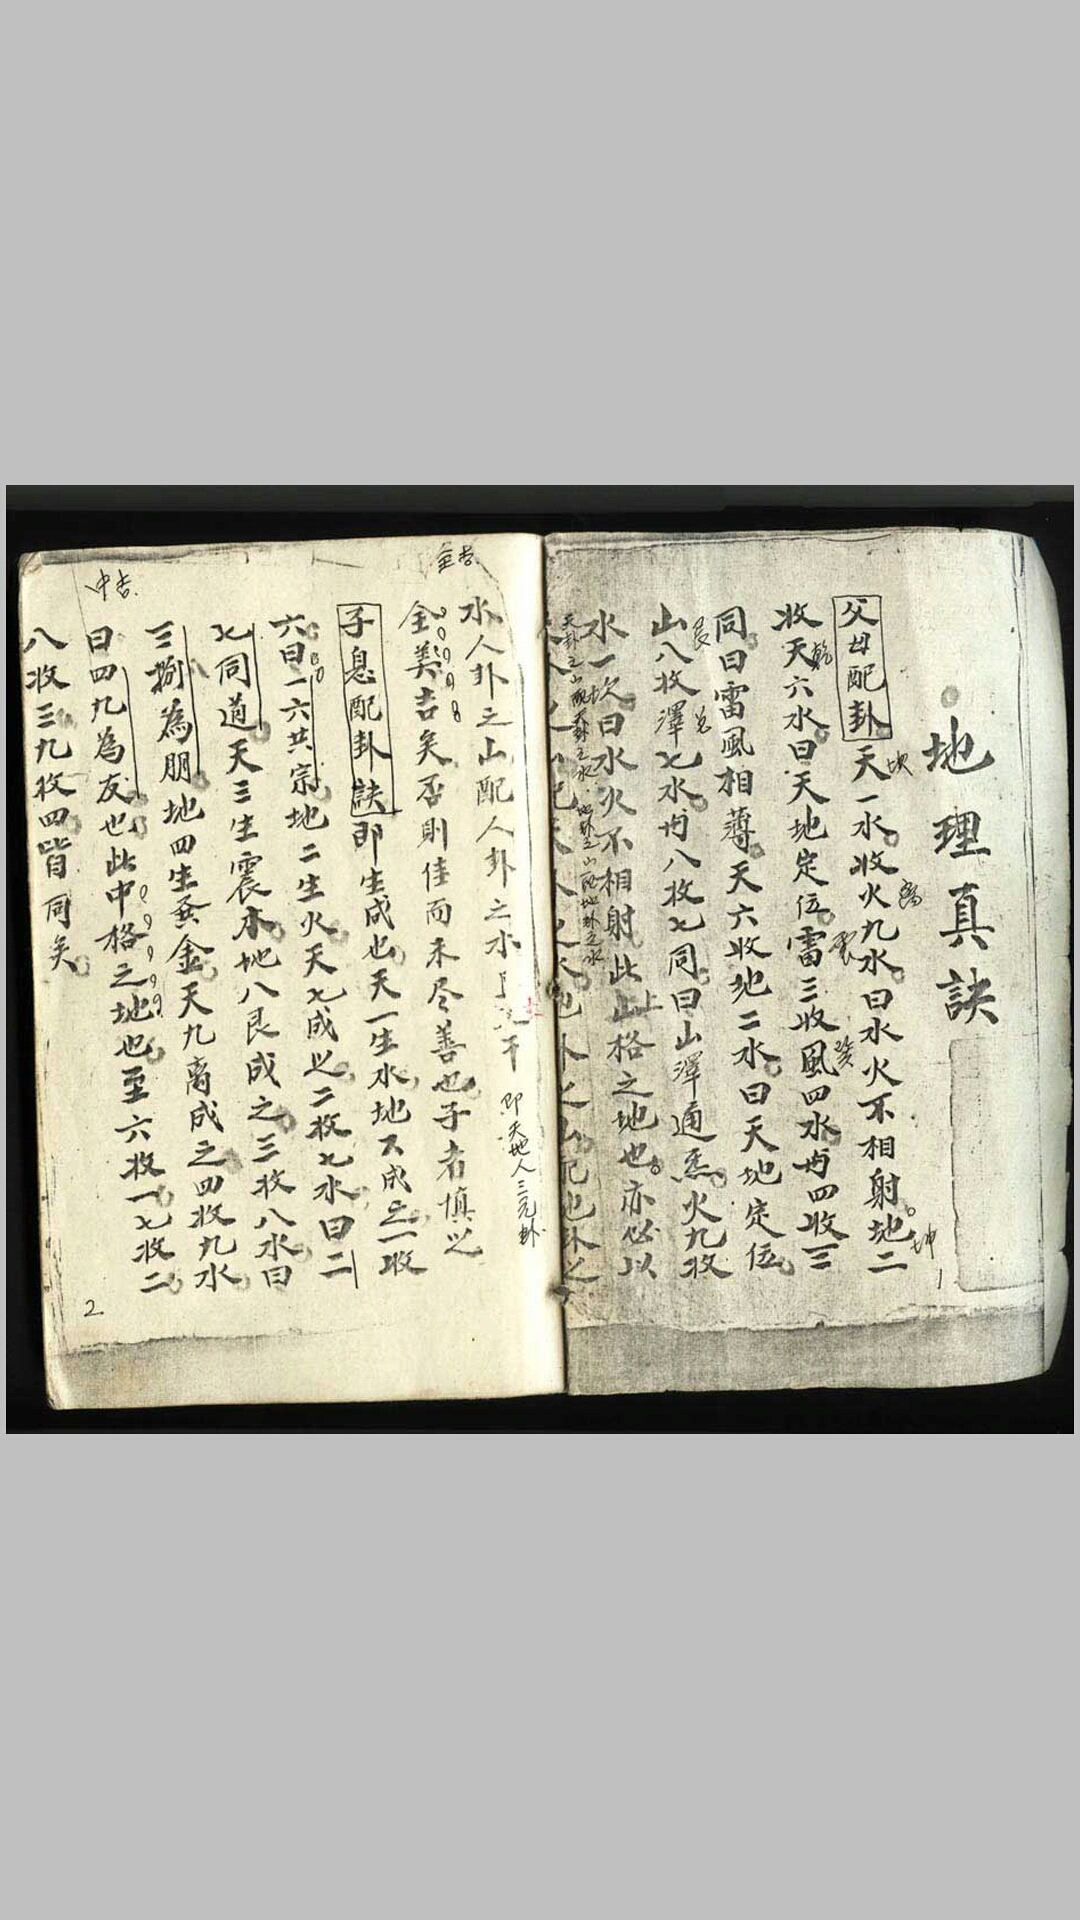 地理真訣
父母配卦天一水收火九水曰水火不相射地二
坎
離
坤
1
收天六水曰天地定位雷三收風四水与四收三
乾
震
巽
同曰雷風相薄天六收地二水曰天地定位
山八收澤七水与八收七同曰山澤通炁火九收
艮
兌
水一坎曰水火不相射此上格之地也亦必以
上
天卦之山配天卦之水地卦之山配地卦之水
全吉
水人卦之山配人卦之水
即天地人三元卦
全美吉矣否則佳而未尽善也子者慎之
子息配卦訣即生成也天一生水地六成之一收
六曰一六共宗地二生火天七成之二收七水曰二
七同道天三生震木地八艮成之三收八水曰
三捌為朋地四生金天九离成之四收九水
中吉
曰四九為友也此中格之地也至六收一七收二
八收三九收四皆同矣
2